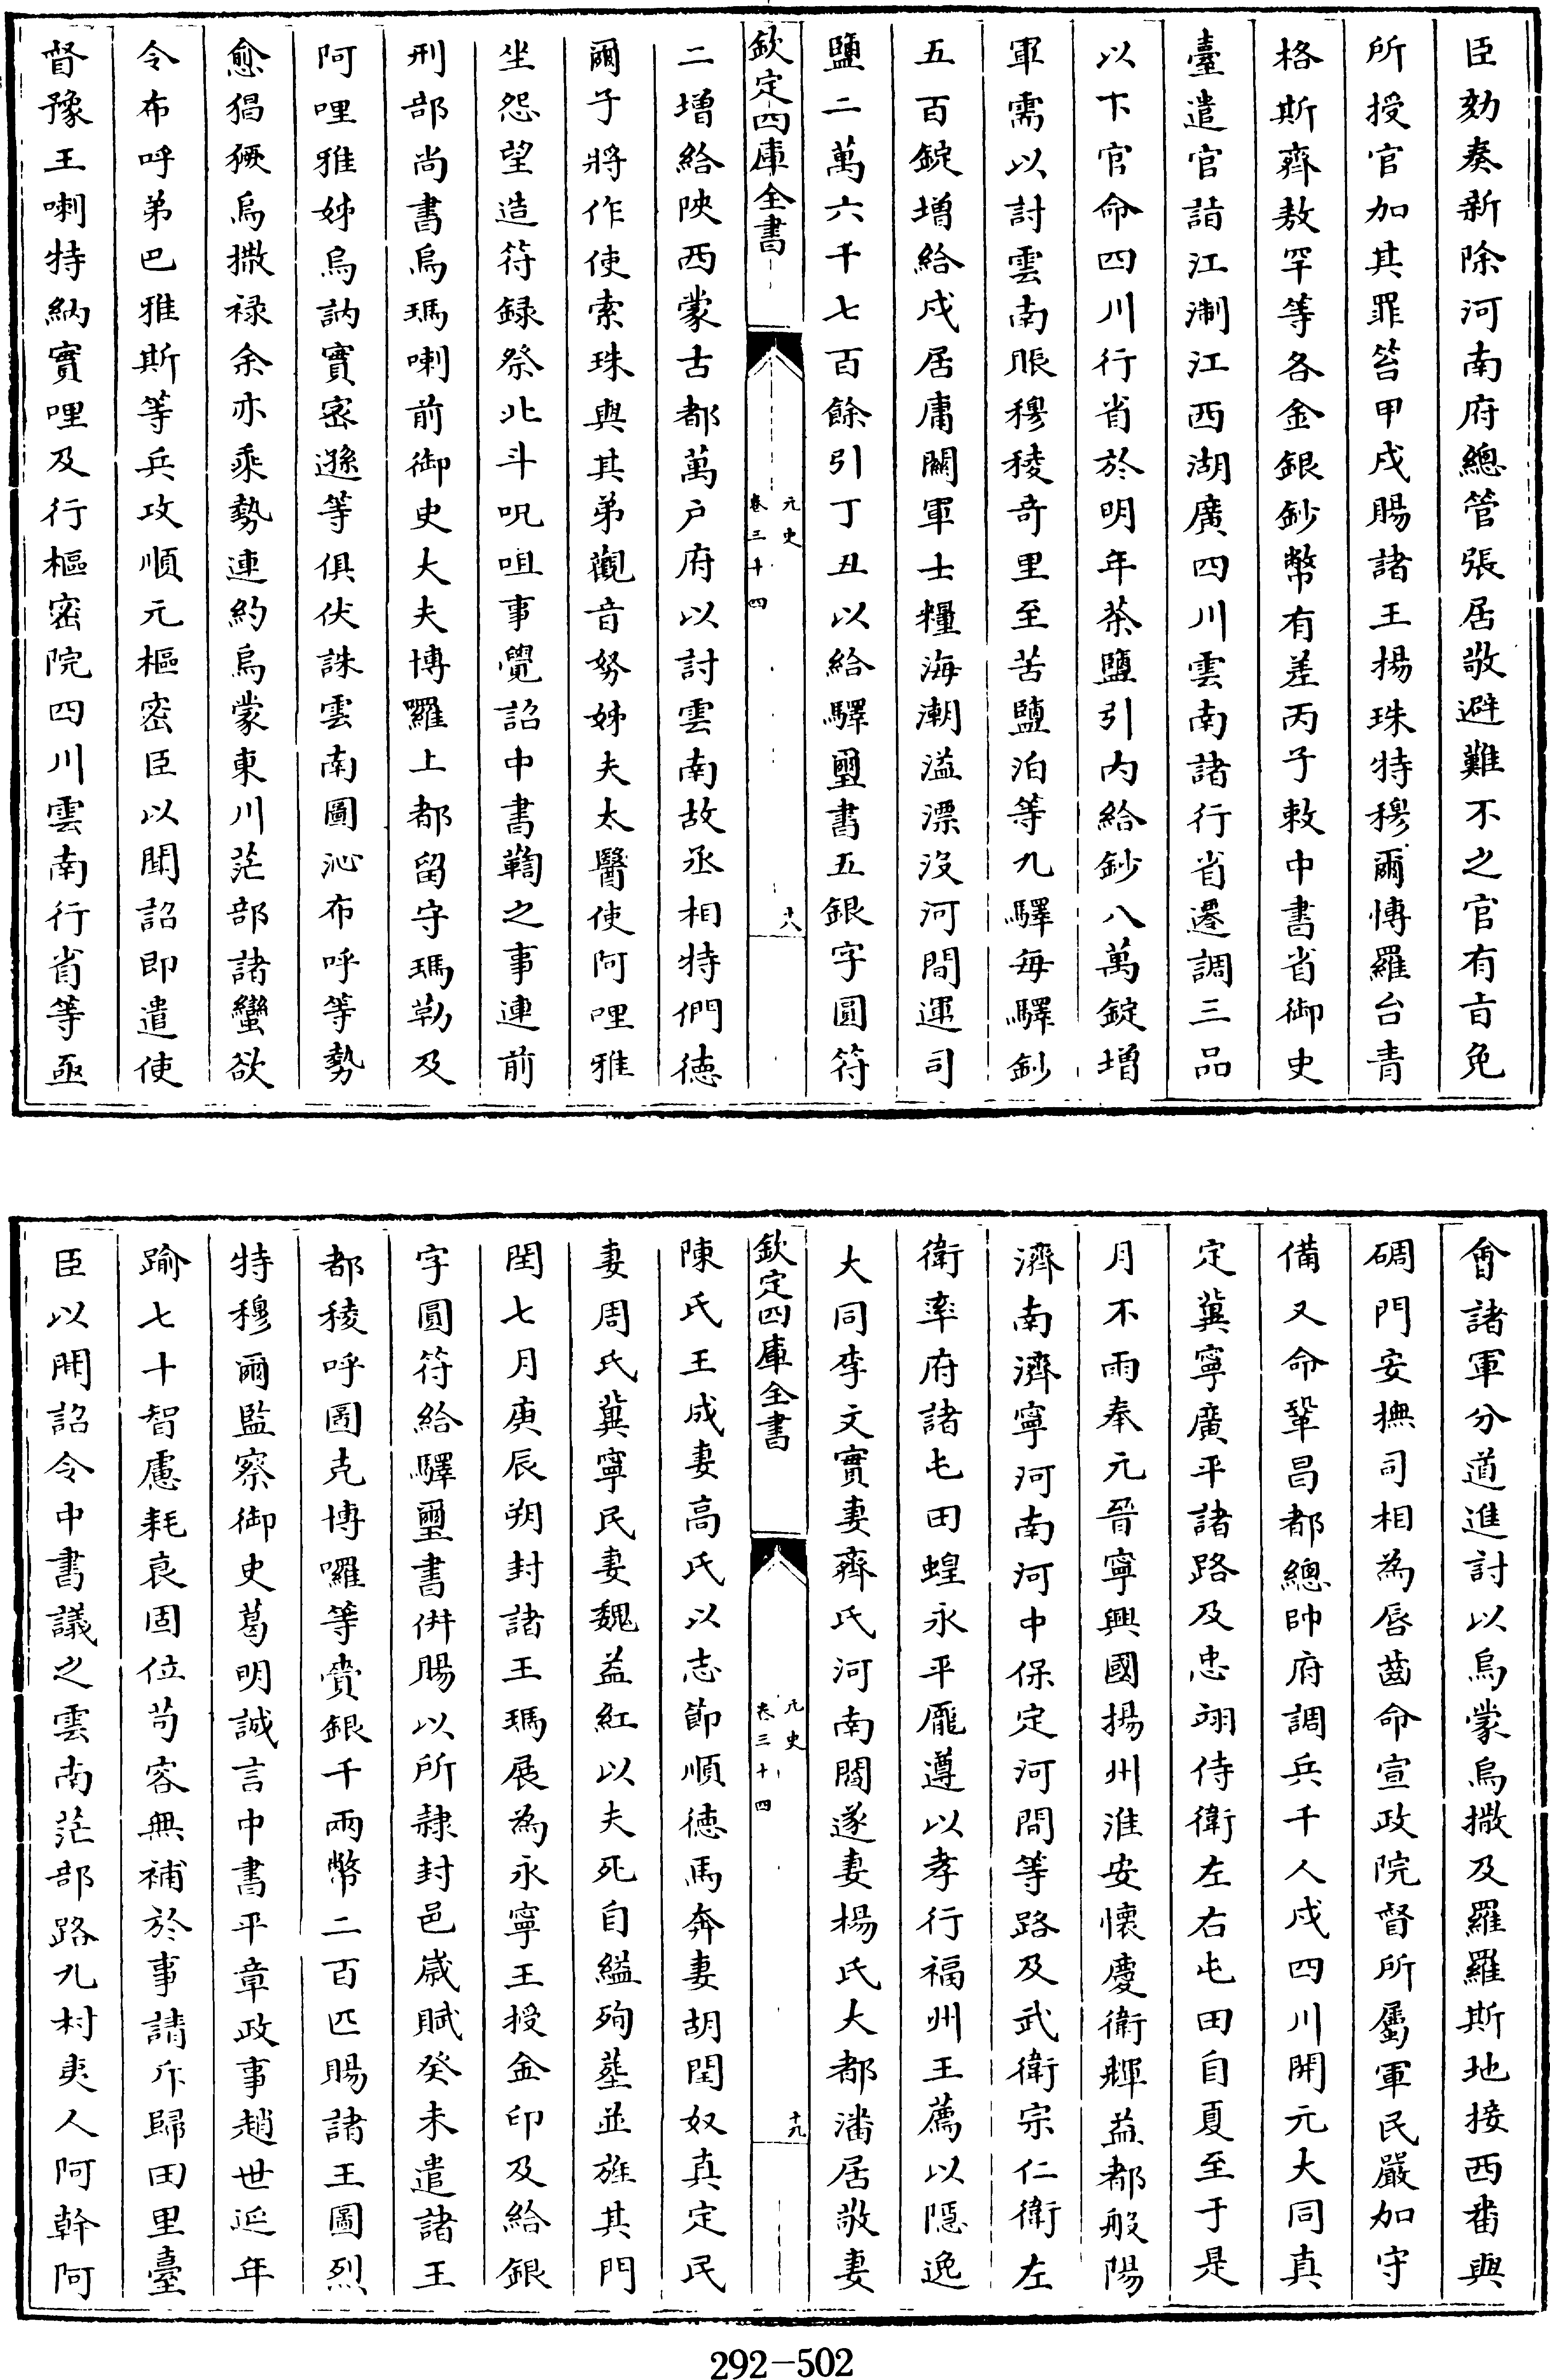 臣劾奏新除河南府總管張居敬避難不之官有㫖免
所授官加其罪笞甲戌賜諸王揚珠特穆爾愽羅台青
格斯齊敖罕等各金銀鈔幣有差丙子敕中書省御史
臺遣官詣江淛江西湖廣四川雲南諸行省遷調三品
以下官命四川行省於明年茶鹽引内給鈔八萬錠增
軍需以討雲南賑穆稜竒里至苦鹽泊等九驛毎驛鈔
五百錠增給戍居庸闗軍士糧海潮溢漂没河間運司
鹽二萬六千七百餘引丁丑以給驛璽書五銀字圓符
欽定四庫全書
元史
卷三十四
十八
二增給陜西蒙古都萬户府以討雲南故丞相特們徳
爾子將作使索珠與其弟觀音努姊夫太醫使阿哩雅
坐怨望造符録祭北斗呪咀事覺詔中書鞫之事連前
刑部尚書烏瑪喇前御史大夫博囉上都留守瑪勒及
阿哩雅姊烏訥實宻遜等俱伏誅雲南圖沁布呼等勢
愈猖獗烏撒禄余亦乗勢連約烏蒙東川茫部諸蠻欲
令布呼弟巴雅斯等兵攻順元樞宻臣以聞詔即遣使
督豫王喇特納實哩及行樞宻院四川雲南行省等亟
會諸軍分道進討以烏蒙烏撒及羅羅斯地接西番與
碉門安撫司相為唇齒命宣政院督所屬軍民嚴加守
備又命鞏昌都總帥府調兵千人戍四川開元大同真
定冀寧廣平諸路及忠翊侍衛左右屯田自夏至于是
月不雨奉元晉寧興國揚州淮安懷慶衛輝益都般陽
濟南濟寧河南河中保定河間等路及武衛宗仁衛左
衛率府諸屯田蝗永平龎遵以孝行福州王薦以隠逸
大同李文實妻齊氏河南閻遂妻楊氏大都潘居敬妻
欽定四庫全書
元史
卷三十四
十九
陳氏王成妻高氏以志節順徳馬奔妻胡閏奴真定民
妻周氏冀寧民妻魏益紅以夫死自縊殉塟並旌其門
閏七月庚辰朔封諸王瑪展為永寧王授金印及給銀
字圓符給驛璽書併賜以所隷封邑嵗賦癸未遣諸王
都稜呼圖克博囉等賫銀千兩幣二百匹賜諸王圖烈
特穆爾監察御史葛明誠言中書平章政事趙世延年
踰七十智慮耗衰固位苟容無補於事請斥歸田里臺
臣以聞詔令中書議之雲南茫部路九村夷人阿斡阿
292-502